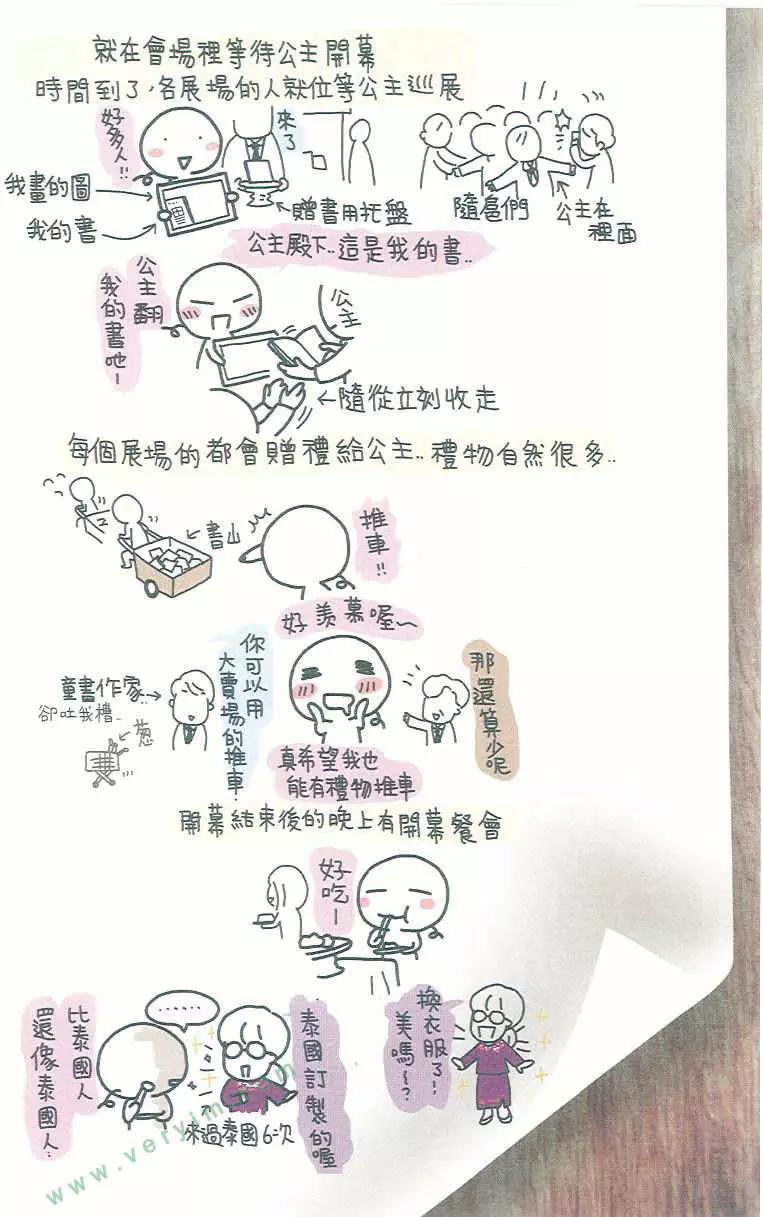 就在會場裡等待公主開幕
時間到了,各展場的人就位等公主巡展
好多人!!
來了
我畫的圖
我的書
贈書用托盤
隨扈們
公主在
裡面
公主殿下..這是我的書..
公主翻
我的書吔ー
公主
隨從立刻收走
每個展場的都會贈禮給公主..禮物自然很多..
書山
推車!!
好羨慕喔~
童書作家
卻吐我槽..
蔥
你可以用
大賣場的推車..
那還算少呢
真希望我也
能有禮物推車
開幕結束後的晚上有開幕餐會
好吃ー
比泰國人
還像泰國人..
......
來過泰國6次
泰國訂製的喔
換衣服了!!
美嗎~?